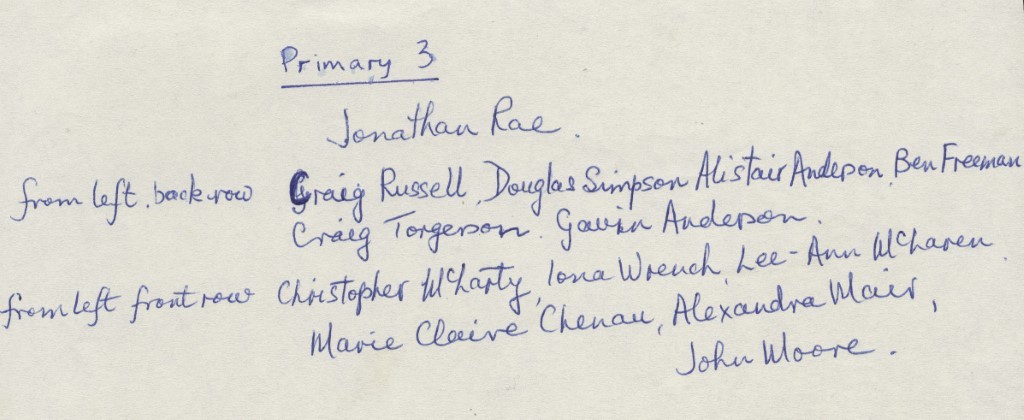 Primary 3
Jonathan Rae.
from left. back row Craig Russell, Douglas Simpson Alistair Anderson, Ben Freeman
Craig Torgerson. Gavin Anderson.
from left front row Christopher McLarty, Iona Wrench, Lee-Ann McLaren
Marie Claire Chenau, Alexandra Mair,
John Moore.